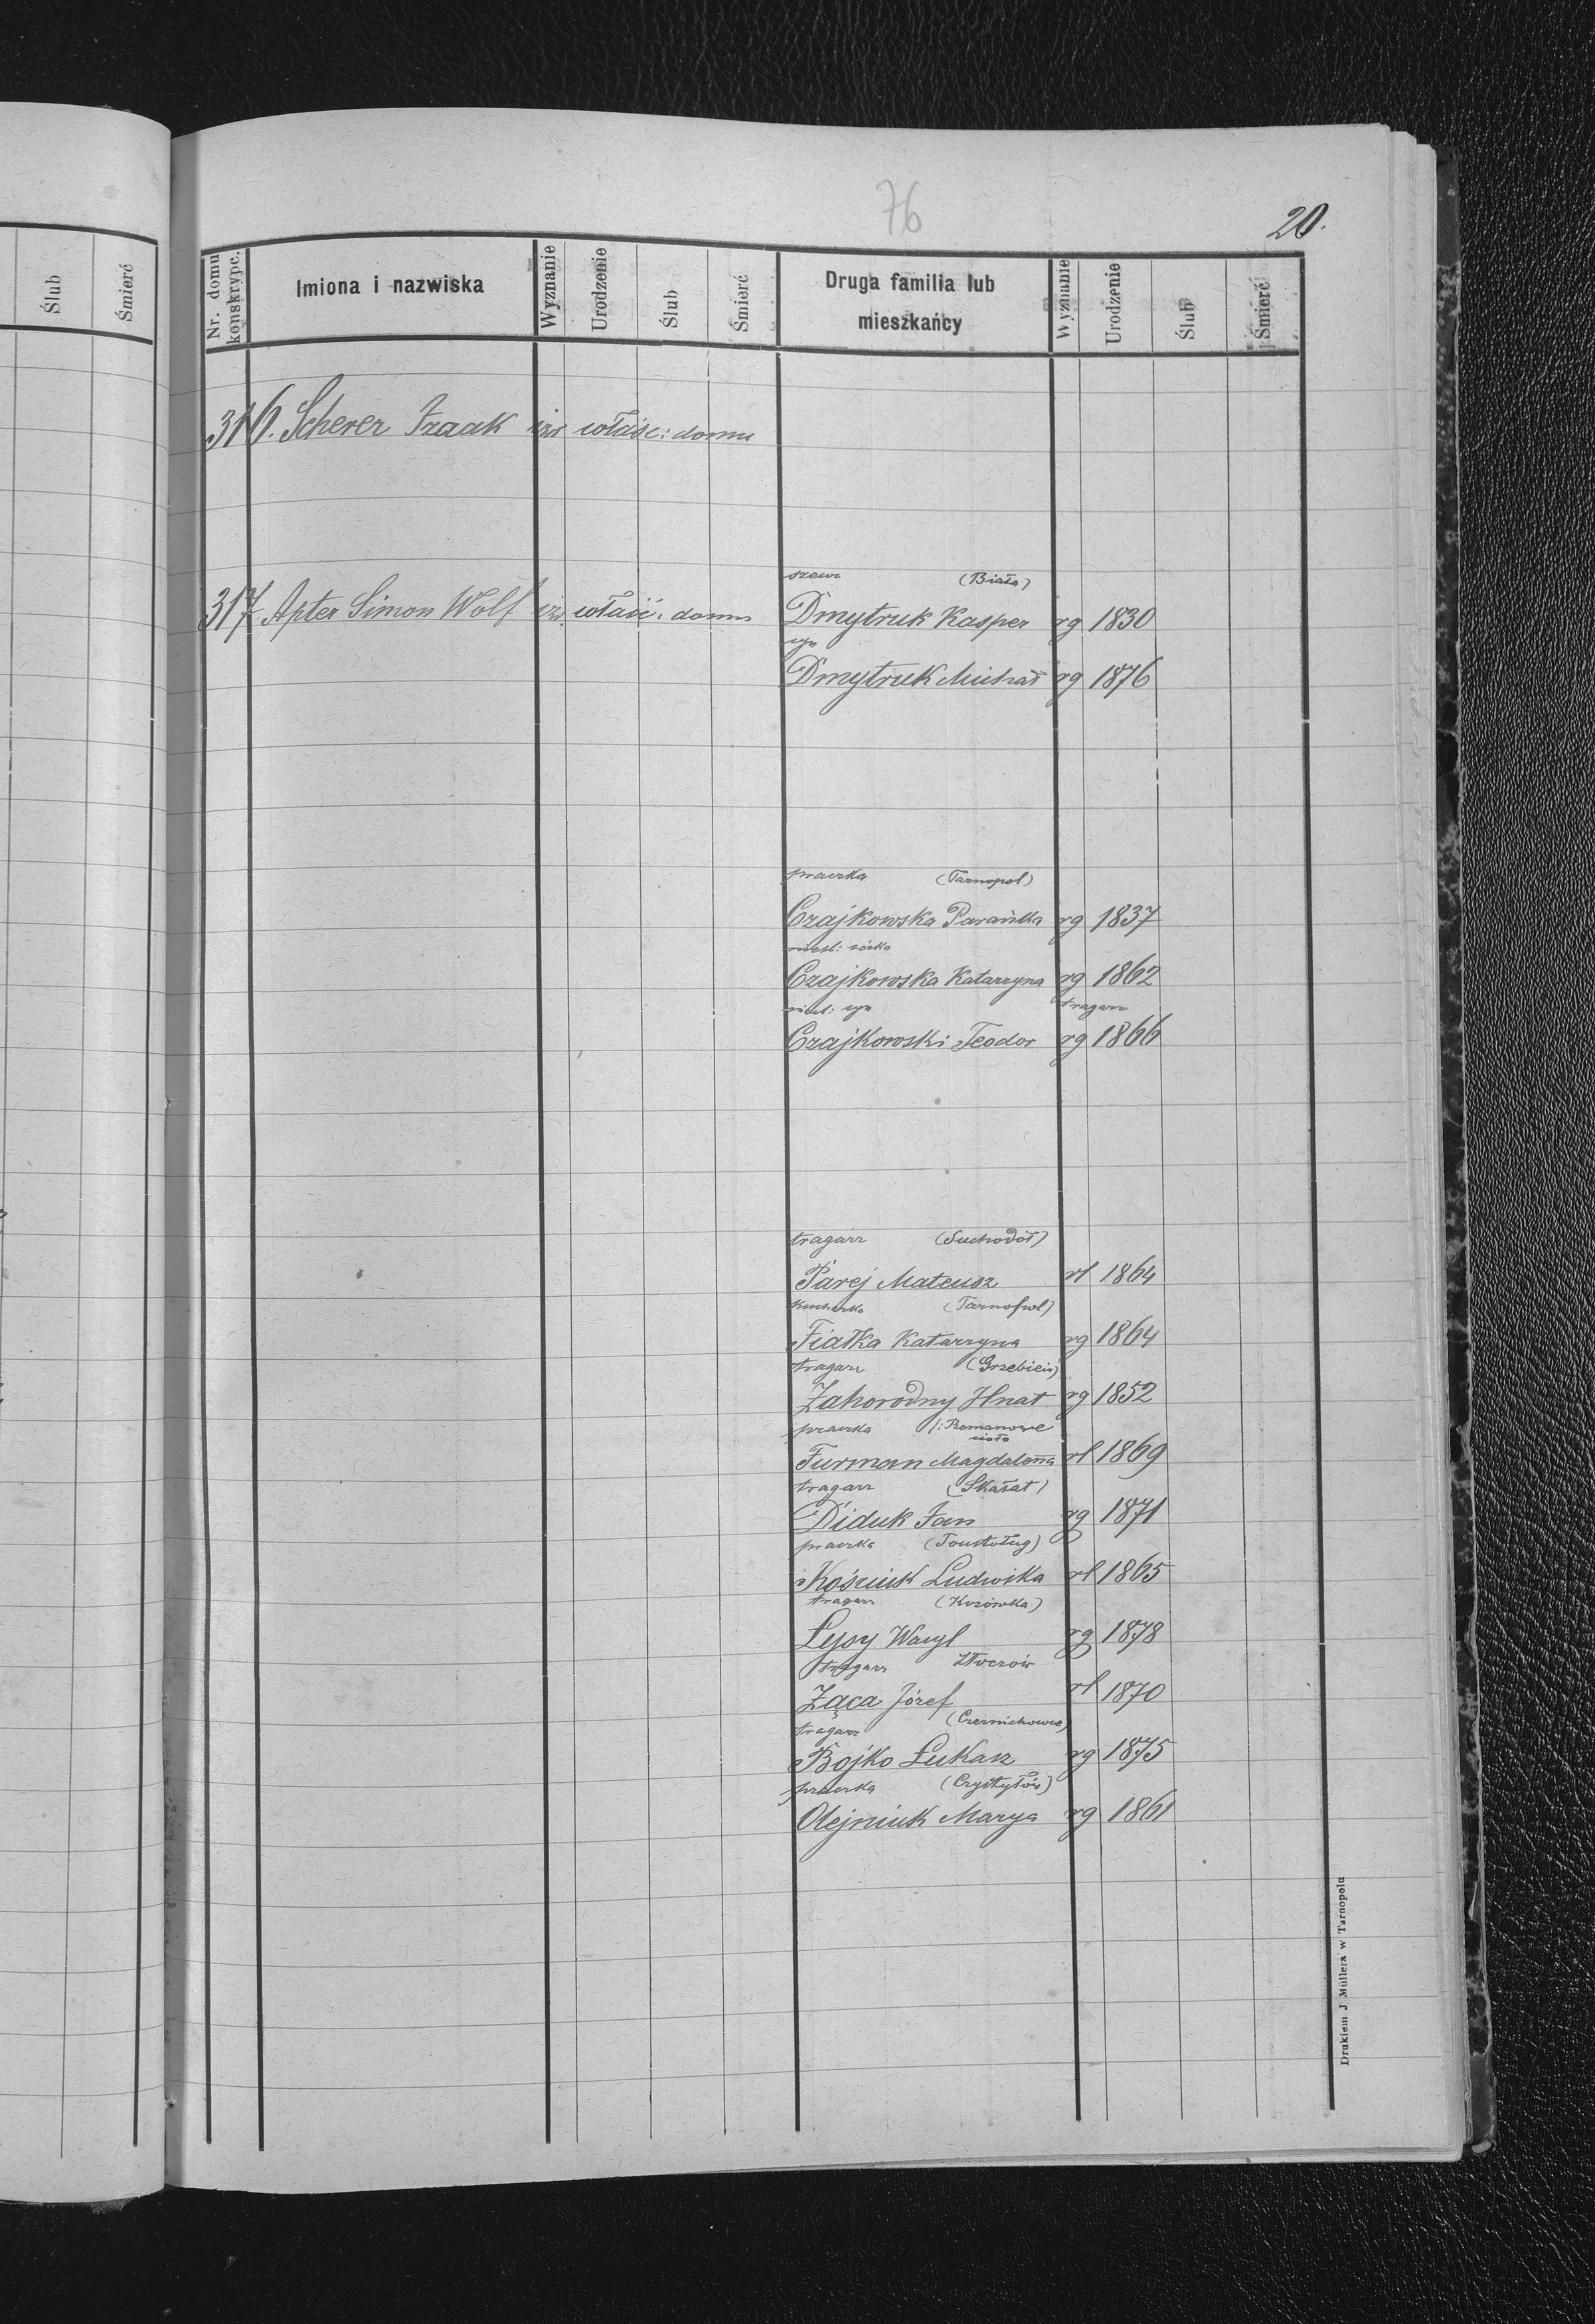 76
20.
Ślub
Śmierć
Nr. domu konskrypc.
Imiona i nazwiska
Wyznanie
Urodzenie
Ślub
Śmierć
Druga familia lub mieszkańcy
Wyznanie
Urodzenie
Ślub
Śmierć
316. Scherer Izaak izr właśc: domu
szewc (Biała)
317 Apter Simon Wolf izr. właść: domu Dmytruk Kasper rg 1830
syn
Dmytruk Michał rg 1876
praczka (Tarnopol)
Czajkowska Parańka rg 1837
nieśl: córka
Czajkowska Katarzyna rg 1862
nieśl: syn tragarz
Czajkowski Teodor rg 1866
tragarz (Suchodół)
Parej Mateusz rl 1864
Kucharka (Tarnopol)
Fiałka Katarzyna rg 1864
tragarz
Zahorodny Hnat rg 1852
praczka (: Romanowe
sioło
Furman Magdalena rl 1869
tragarz (Skałat)
Diduk Jan rg 1871
praczka (Toustoług)
Kościuk Ludwika rl 1865
tragarz (Kozówka)
Łysy Wasyl rg 1878
tragarz Złoczów
Zając Józef rl 1870
tragarz (Czernichowce)
Bojko Łukasz rg 1875
praczka (Czystyłów)
Olejniuk Marya rg 1861
Drukiem J Müllera w Tarnopolu